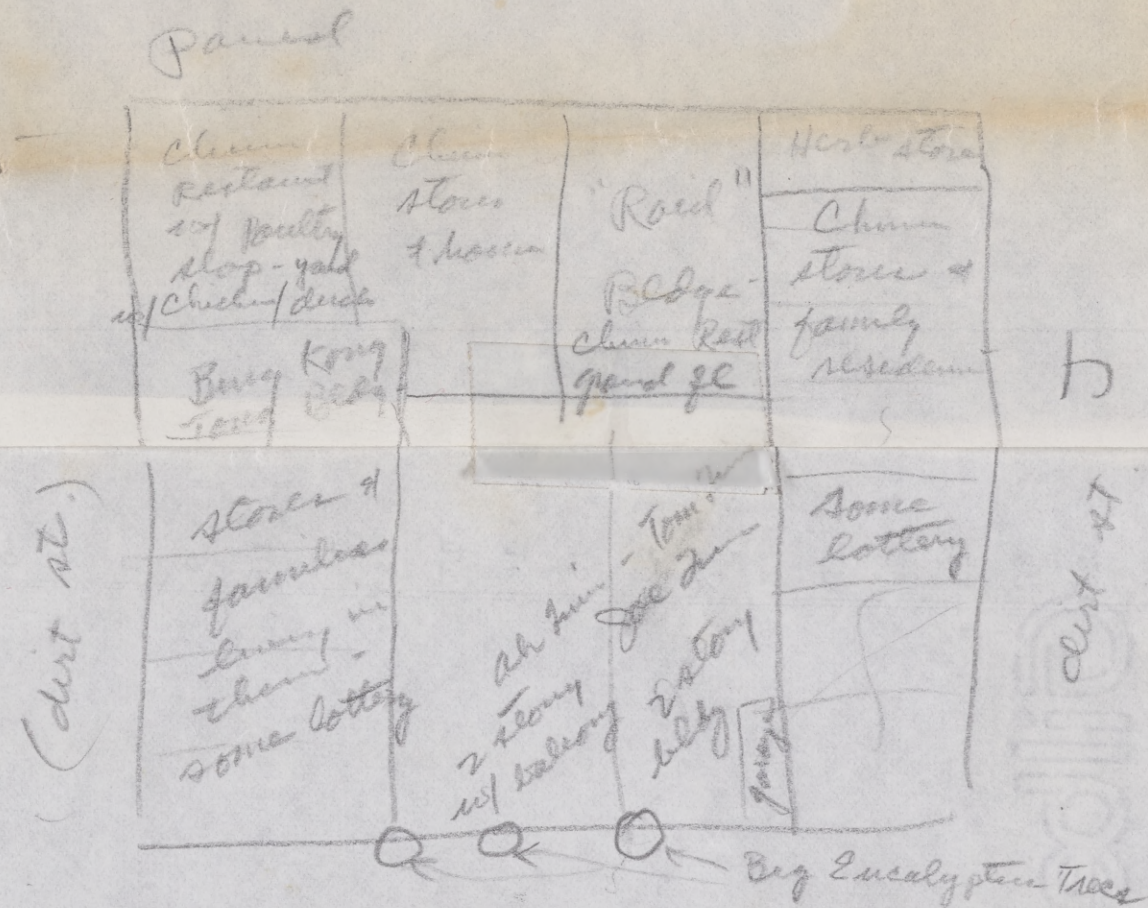 paused
Chinn
Restaunt
w/ Poultry
slop-yard
w/ Chicken/ducks
Chinn
stores
& homes
"Raid"
Bldgs-
Chinn Rest
grand
Herb store
Chinn
stores &
family
residenc
Bing Kong
Tong Bldg
4
(dirt st.)
stores &
families
living in
them -
some lottery
2 story
w/ balcony
2 story
bldg
garage
some
lottery
dirt st
Big Eucalyptus Trees